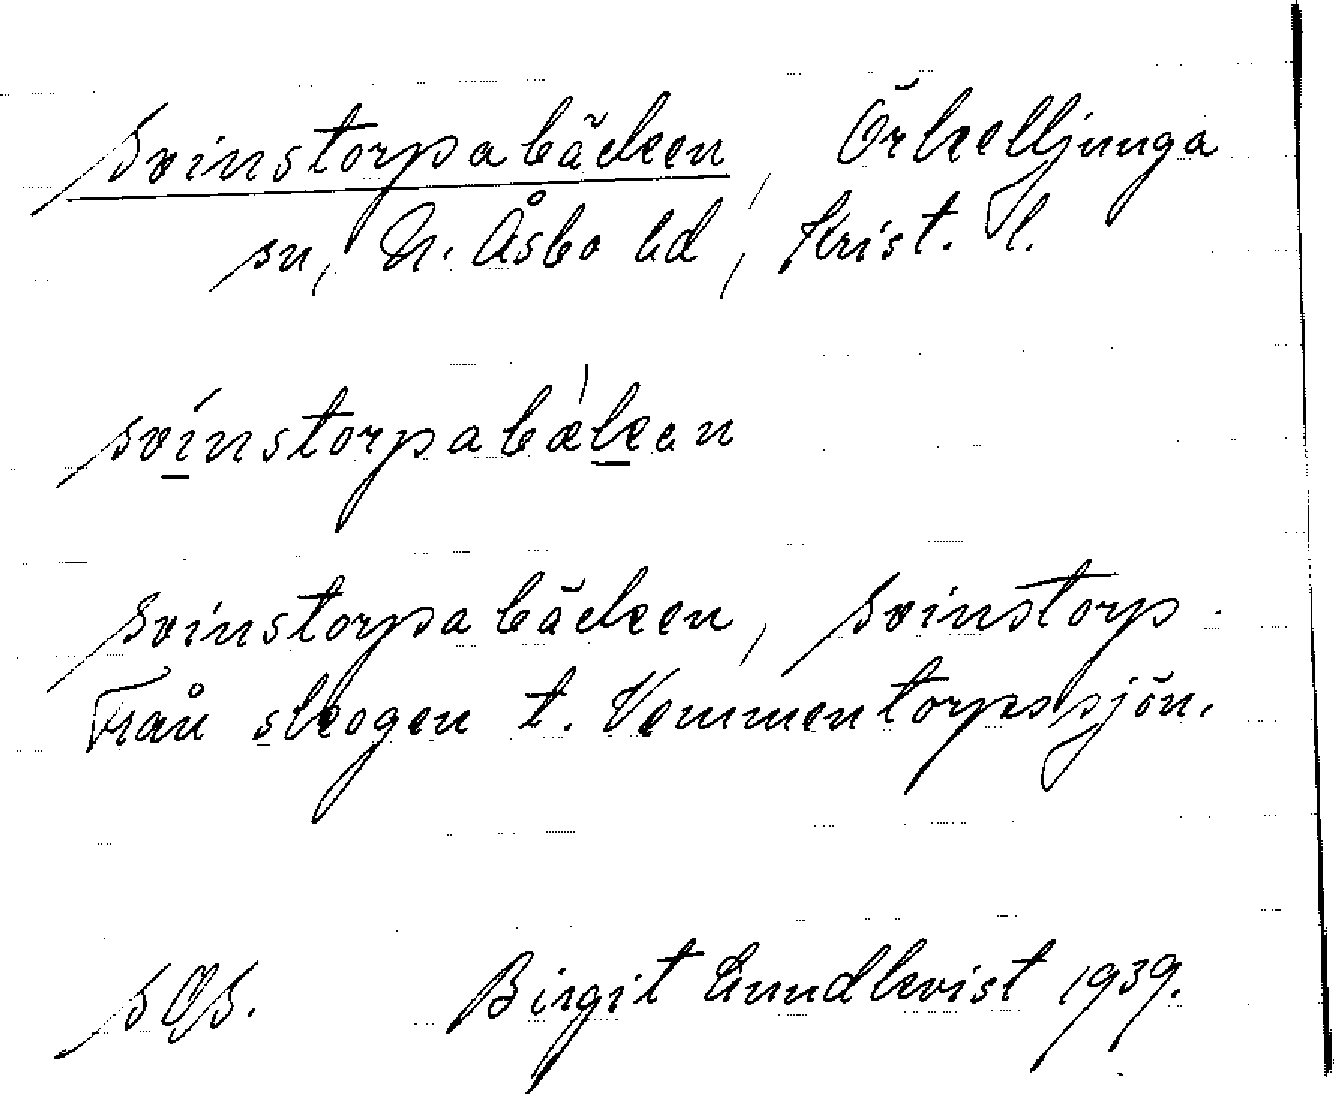 Svinstorpabäcken, Örkelljunga
sn, N. Åsbo hd, Krist. l.
svínstorpabæken
Svinstorpabäcken, Svinstorp.
Från skogen t. Vemmentorpssjön.
SOS. Birgit Lundkvist 1939.